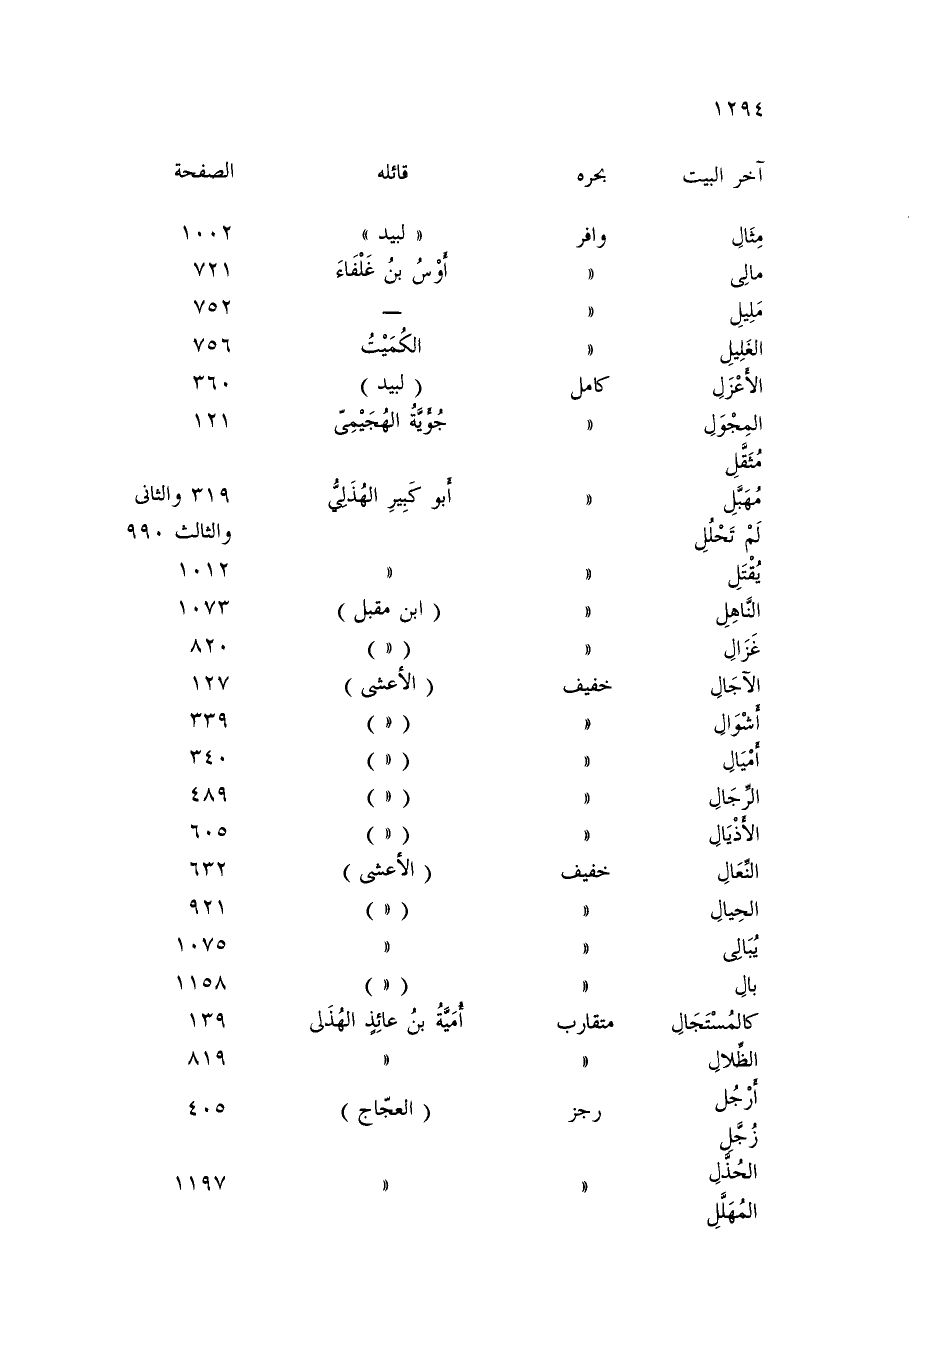 ١٢٩٤
آخر البيت بحره قائله الصفحة
مِثَالِ وافر « لبيد » ١٠٠٢
مالِى » أَوْسُ بنُ غَلْفَاءَ ٧٢١
مَلِيلِ » — ٧٥٢
الغَلِيلِ » الكُمَيْتُ ٧٥٦
الأَعْزَلِ كامل ( لبيد ) ٣٦٠
المِجْوَلِ » جُؤَيَّةُ الهُجَيْمِىّ ١٢١
مُثَقَّلِ
مُهَبَّلِ » أَبو كَبِيرِ الهُذَلِيُّ ٣١٩ والثانى
لَمْ تَحْلُلِ والثالث ٩٩٠
يُقْتَلِ » » ١٠١٢
النَّاهِلِ » ( ابن مقبل ) ١٠٧٣
غَزَالِ » ( » ) ٨٢٠
الآجَالِ خفيف ( الأعشى ) ١٢٧
أَشْوَالِ » ( » ) ٣٣٩
أَمْيَالِ » ( » ) ٣٤٠
الرِّجَالِ » ( » ) ٤٨٩
الأَذْيَالِ » ( » ) ٦٠٥
النِّعَالِ خفيف ( الأعشى ) ٦٣٢
الحِيالِ » ( » ) ٩٢١
يُبَالِى » » ١٠٧٥
بالِ » ( » ) ١١٥٨
كالمُسْتَجَالِ متقارب أُمَيَّةُ بنُ عائِذٍ الهُذَلى ١٣٩
الظِّلالِ » » ٨١٩
أَرْجُل
رجز ( العجّاج ) ٤٠٥
زُجَّلِ
الحُذَّلِ
» » ١١٩٧
المُهَلَّلِ